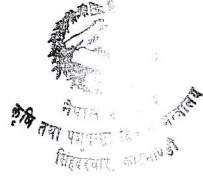 नेपाल
कृषि तथा पशुपन्छी मन्त्रालय
सिंहदरबार, काठमाण्डौ